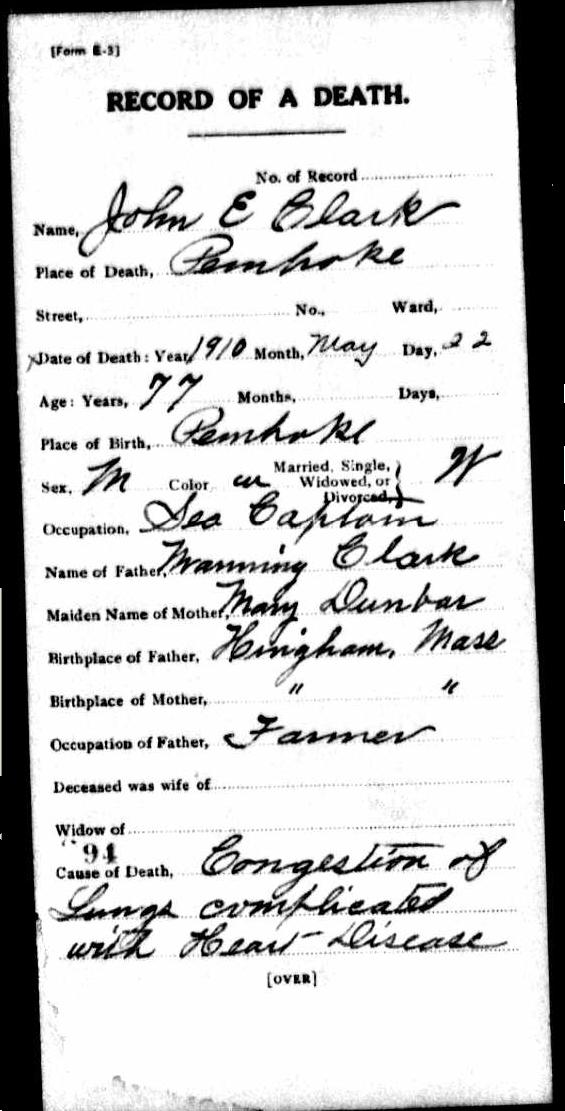 [Form E-3]
RECORD OF A DEATH.
No. of Record
Name, John E Clark
Place of Death, Pembroke
Street, No., Ward,
Date of Death: Year, 1910 Month, May Day, 22
Age: Years, 77 Months, Days,
Place of Birth, Pembroke
Sex, M Color w Married, Single, Widowed, or Divorced, W
Occupation, Sea Captain
Name of Father, Manning Clark
Maiden Name of Mother, Mary Dunbar
Birthplace of Father, Hingham, Mass
Birthplace of Mother, " "
Occupation of Father, Farmer
Deceased was wife of
Widow of
94
Cause of Death, Congestion of
Lungs complicated
with Heart Disease
[OVER]